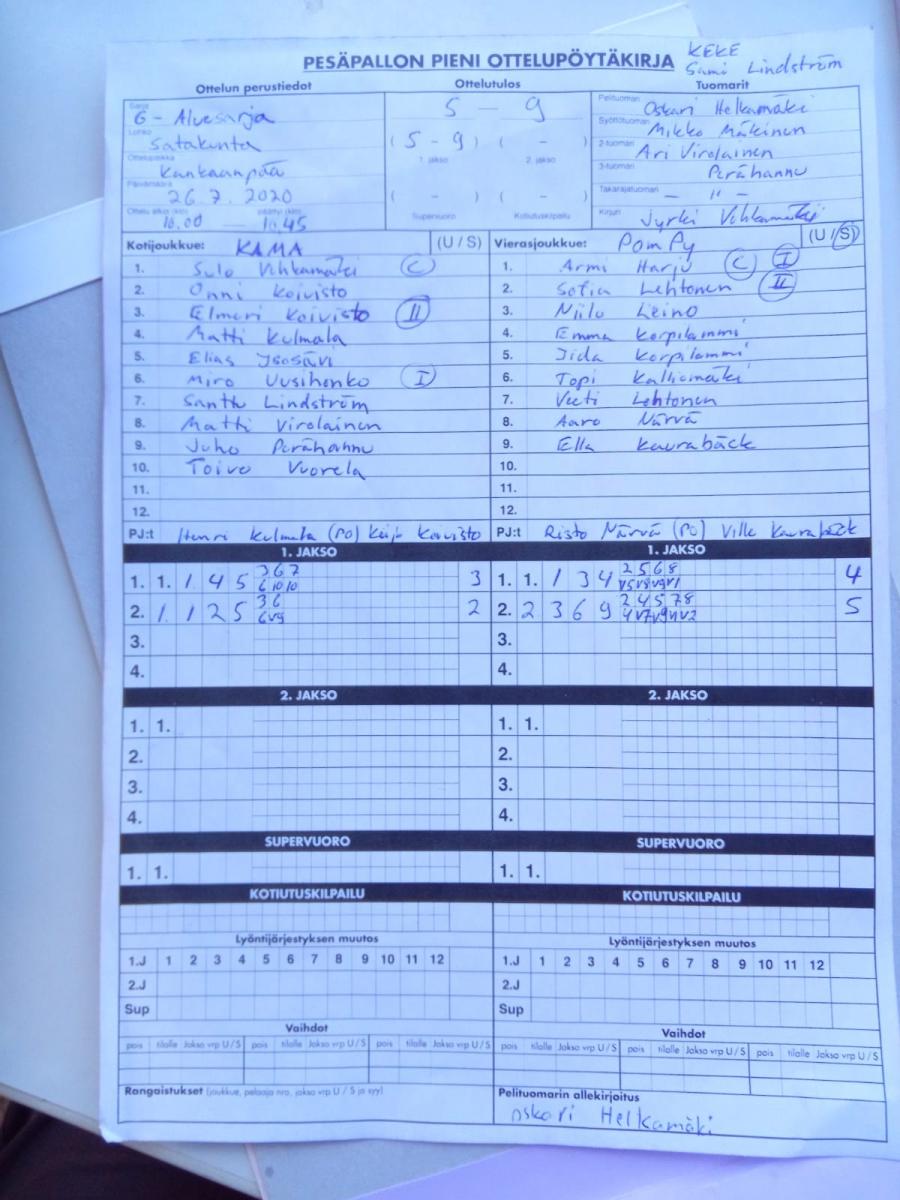 KEKE
PESÄPALLON PIENI OTTELUPÖYTÄKIRJA Sami Lindström
Ottelun perustiedot Ottelutulos Tuomarit
Sarja G-Aluesarja
Lohko Satakunta
Ottelupaikka Kankaanpää
Päivämäärä 26.7.2020
Ottelu alkoi (klo) 10.00 — päättyi (klo) 10.45
5 — 9
(5-9) ( - )
1. jakso 2. jakso
( - ) ( - )
Supervuoro Kotiutuskilpailu
Pelituomari Oskari Helkamäki
Syöttötuomari Mikko Mäkinen
2-tuomari Ari Virolainen
3-tuomari Perähannu
Takarajatuomari — " —
Kirjuri Jyrki Vihkamäki
Kotijoukkue: KAMA (U / S)
1. Sulo Vihkamäki C
2. Onni Koivisto
3. Elmeri Koivisto II
4. Matti Kulmala
5. Elias Isosävi
6. Miro Uusihonko I
7. Santtu Lindström
8. Matti Virolainen
9. Juho Perähannu
10. Toivo Vuorela
11.
12.
PJ:t Henri Kulmala (PO) Keijo Koivisto
Vierasjoukkue: PomPy (U / S)
1. Armi Harju C I
2. Sofia Lehtonen II
3. Niilo Leino
4. Emma Korpilammi
5. Iida Korpilammi
6. Topi Kalliomäki
7. Veeti Lehtonen
8. Aaro Närvä
9. Ella Kaurabäck
10.
11.
12.
PJ:t Risto Närvä (PO) Ville Kaurabäck
1. JAKSO 1. JAKSO
1. 1. 1 4 5 3 6 7 3
6 10 10
2. 1. 1 2 5 3 6 2
6 V9
3.
4.
1. 1. 1 3 4 2 5 6 8 4
V5 V8 V9 V1
2. 2 3 6 9 2 4 5 7 8 5
4 V7 V9 V1 V2
3.
4.
2. JAKSO 2. JAKSO
1. 1. 1. 1.
2. 2.
3. 3.
4. 4.
SUPERVUORO SUPERVUORO
1. 1. 1. 1.
KOTIUTUSKILPAILU KOTIUTUSKILPAILU
Lyöntijärjestyksen muutos Lyöntijärjestyksen muutos
1.J 1 2 3 4 5 6 7 8 9 10 11 12 1.J 1 2 3 4 5 6 7 8 9 10 11 12
2.J 2.J
Sup Sup
Vaihdot Vaihdot
pois tilalle Jakso vrp U / S pois tilalle Jakso vrp U / S pois tilalle Jakso vrp U / S pois tilalle Jakso vrp U / S pois tilalle Jakso vrp U / S pois tilalle Jakso vrp U / S
Rangaistukset (joukkue, pelaaja nro, jakso vrp U / S ja syy) Pelituomarin allekirjoitus
Oskari Helkamäki